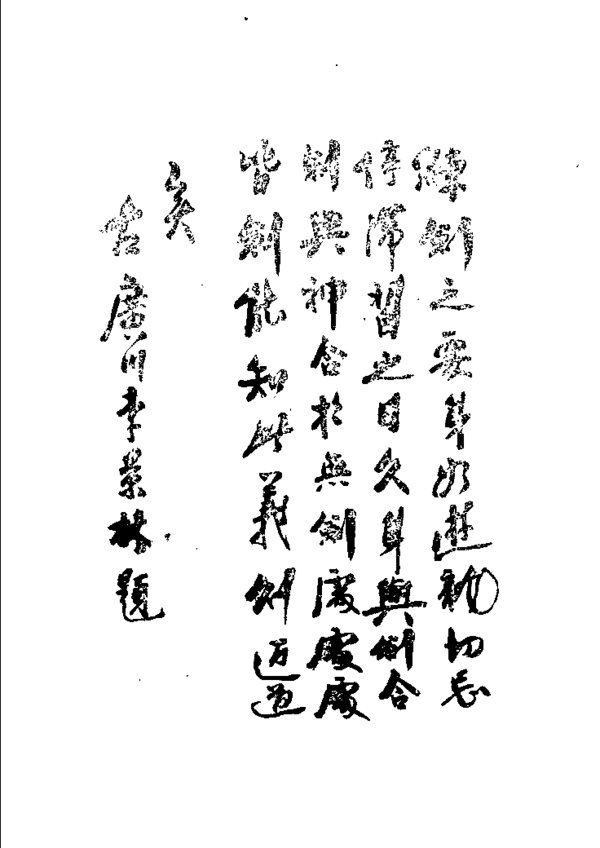 練劍之要身如遊龍切忌
停滯習之日久身與劍合
劍與神合於無劍處處處
皆劍能知此義則近道
矣
古廣川李景林題